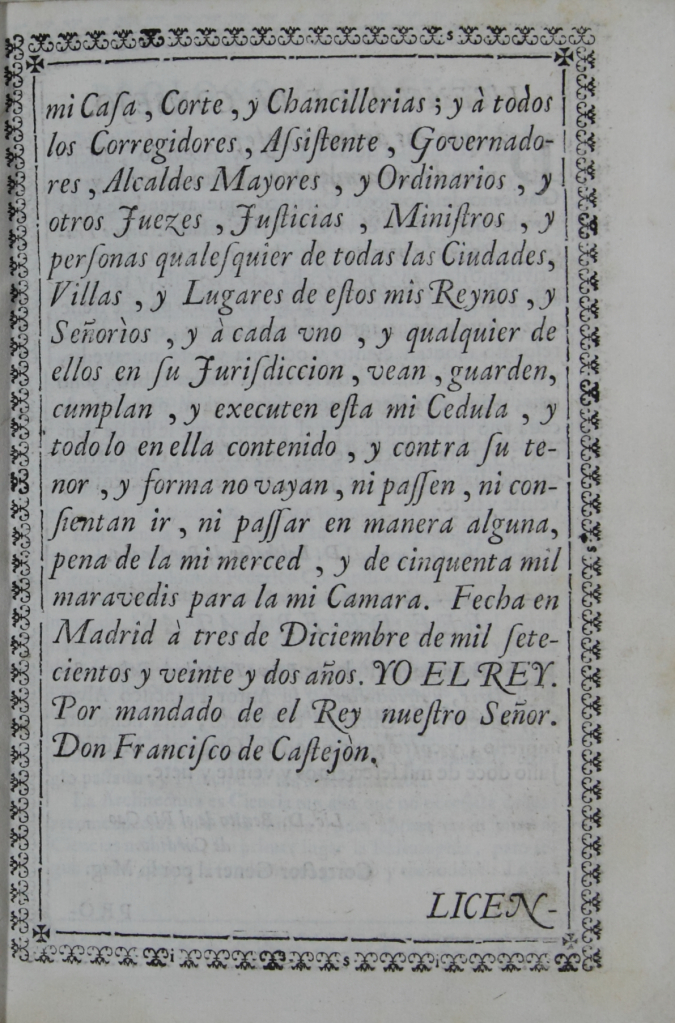 mi Caſa, Corte, y Chancillerias; y à todos
los Corregidores, Aſsiſtente, Governado-
res, Alcaldes Mayores, y Ordinarios, y
otros Juezes, Juſticias, Miniſtros, y
perſonas qualeſquier de todas las Ciudades,
Villas, y Lugares de eſtos mis Reynos, y
Señorìos, y à cada vno, y qualquier de
ellos en ſu Juriſdiccion, vean, guarden,
cumplan, y executen eſta mi Cedula, y
todo lo en ella contenido, y contra ſu te-
nor, y forma no vayan, ni paſſen, ni con-
ſientan ir, ni paſſar en manera alguna,
pena de la mi merced, y de cinquenta mil
maravedis para la mi Camara. Fecha en
Madrid à tres de Diciembre de mil ſete-
cientos y veinte y dos años. YO EL REY.
Por mandado de el Rey nueſtro Señor.
Don Franciſco de Caſtejòn.
LICEN-